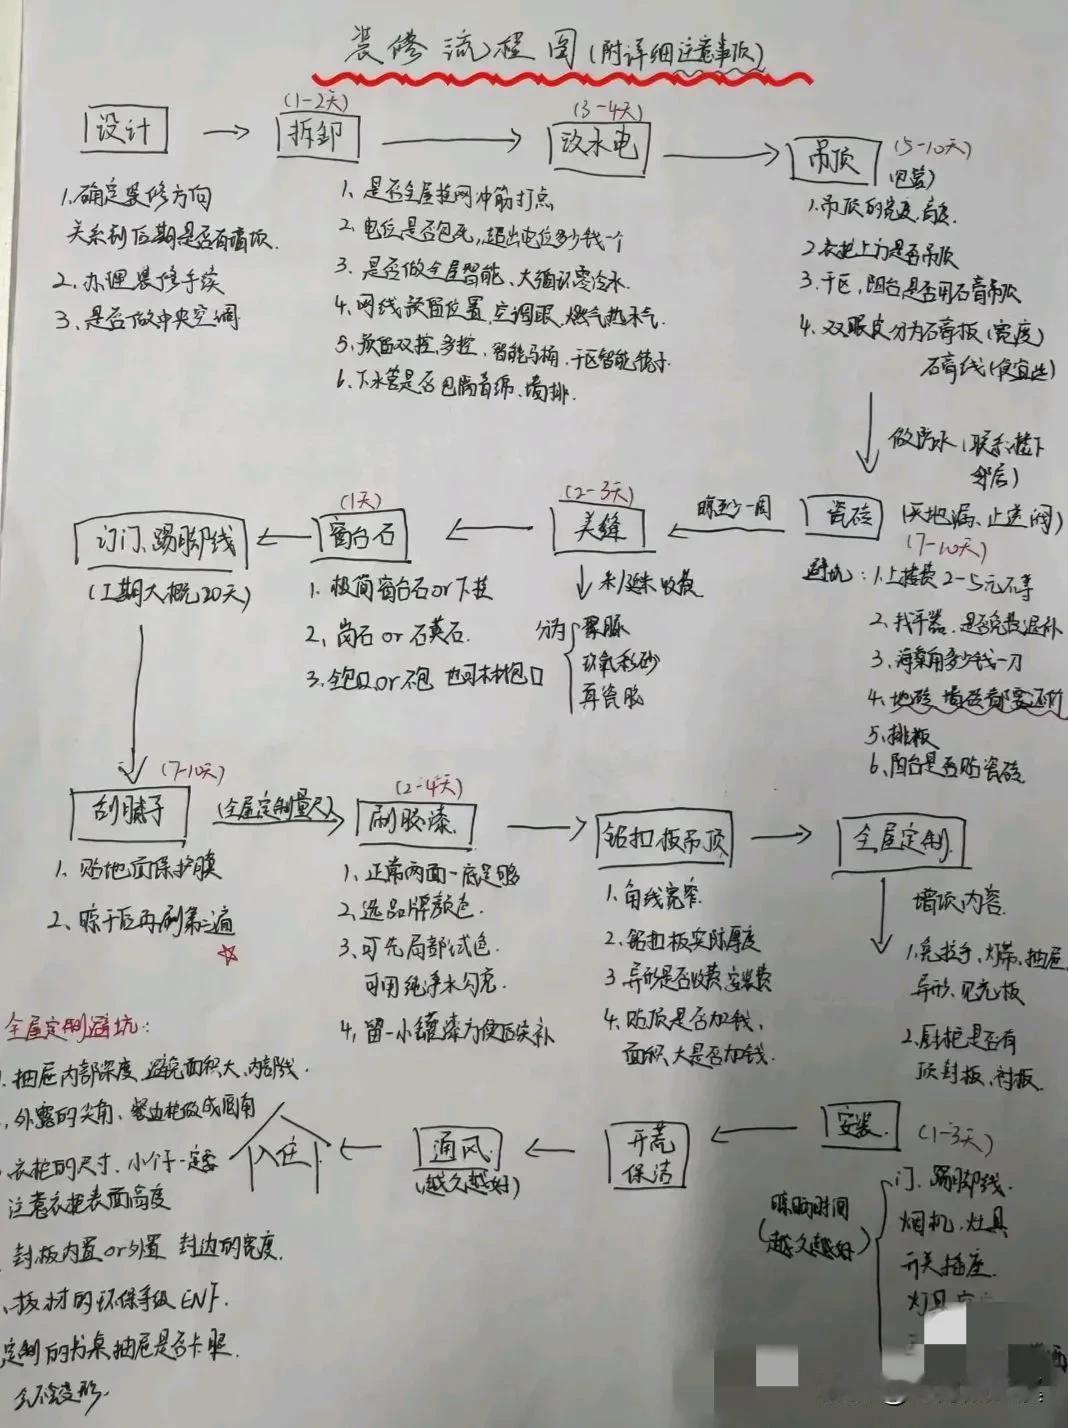 装修流程图(附详细注意事项)
设计
1.确定装修方向
关系到后期是否有增项.
2、办理装修手续
3、是否做中央空调
(1-2天)
拆卸
(3-4天)
改水电
1、是否全屋挂网冲筋打点
2、电位是否包死,超出电位多少钱一个
3、是否做全屋智能、大循环零冷水
4、网线预留位置,空调眼,燃气热水气.
5、预留双控,多控,智能马桶,干区智能镜子.
6、下水管是否包隔音绵、墙排.
(5-10天)
吊顶
1.吊顶的宽度,高度.
2.衣柜上方是否吊顶
3、干区,阳台是否用石膏吊顶
4、双眼皮分为石膏板(宽度)
石膏线(便宜些)
做防水(联系楼下
邻居)
瓷砖
(买地漏、止逆阀)
(7-10天)
避坑:1.上楼费2-5元不等
2、找平器、是否免费退补
3、海棠角多少钱一刀
4、地砖、墙砖都要
5、排板
6、阳台是否贴瓷砖
晾至少一周
(2-3天)
美缝
米/延米收费
分为
聚脲
环氧彩砂
再瓷胶
(1天)
窗台石
1、极简窗台石or下挂
2、岗石or石英石.
3.全包口or不包 也可木材包口
订门、踢脚线
(工期大概20天)
(7-10天)
刮腻子
1、贴地面保护膜
2、晾干后再刷第三遍
(全屋定制量尺)
(2-4天)
刷胶漆.
1、正常两面一底足够
2、选品牌颜色.
3、可先局部试色.
可用纯净水勾兑.
4,留一小罐漆方便后续补
铝扣板吊顶
1.角线宽窄.
2.铝扣板实际厚度
3异形是否收费,安装费
4、贴顶是否加钱.
面积大是否加钱.
全屋定制.
增项内容.
1.免拉手、灯带、抽屉
异形、见光板
2、厨柜是否有
顶封板、衬板.
安装.
(1-3天)
门、踢脚线.
烟机、灶具
开关插座.
灯具
晾晒时间
(越久越好)
开荒
保洁
通风.
(越久越好)
入住
全屋定制避坑:
抽屉内部深度,避免面积大、内部浅.
外露的尖角、餐边柜做成圆角
衣柜的尺寸、小个子一定要
注意衣柜表面高度
封板内置or外置 封边的宽度.
板材的环保等级ENF.
定制的书桌抽屉是否卡腿.
会不会变形.